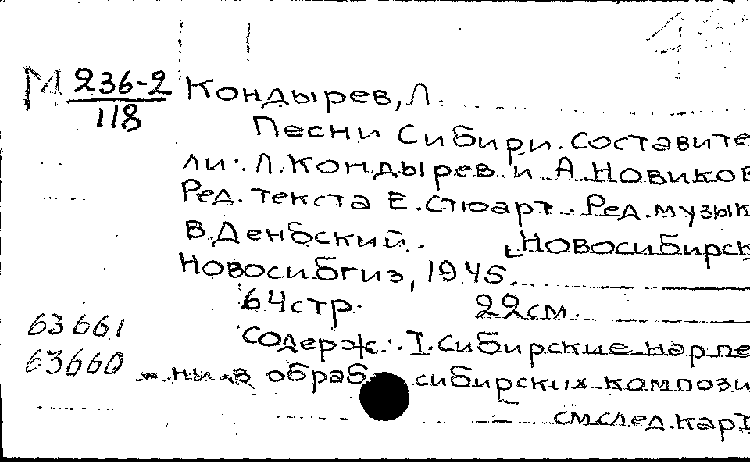 М 236-2 Кондырев, Л.
118
Песни Сибири. Составите
ли: Л. Кондырев и А. Новиков
Ред. текста Е. Стюарт. Ред. музык
В. Денбский. Новосибирск
Новосибгиз, 1945.
64 стр. 22 см.
63661 Содерж.: I. Сибирские нар. пе
63660 ни в обраб. сибирских компози
См. след. карт